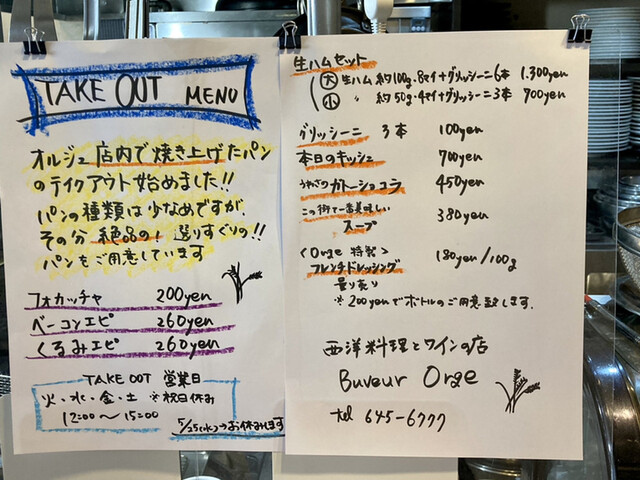 TAKE OUT MENU
オルジュ店内で焼き上げたパン
のテイクアウト始めました!!
パンの種類は少なめですが、
その分 絶品の! 選りすぐりの!!
パンをご用意しています
フォカッチャ 200yen
ベーコンエピ 260yen
くるみエピ 260yen
TAKE OUT 営業日
火・水・金・土 ※祝日休み
12:00〜15:00
5/25(水)→お休みします
生ハムセット
大 生ハム 約100g・8マイ+グリッシーニ6本 1.300yen
小 〃 約50g・4マイ+グリッシーニ3本 700yen
グリッシーニ 3本 100yen
本日のキッシュ 700yen
うわさのガトーショコラ 450yen
この街で一番美味しい
スープ 380yen
<Orge 特製>
フレンチドレッシング 180yen/100g
量り売り
※200yenでボトルのご用意致します.
西洋料理とワインの店
Buveur Orge
tel 645-6777